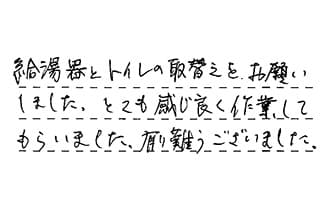 給湯器とトイレの取替えを、お願い
しました。とても感じ良く作業して
もらいました、有り難うございました。